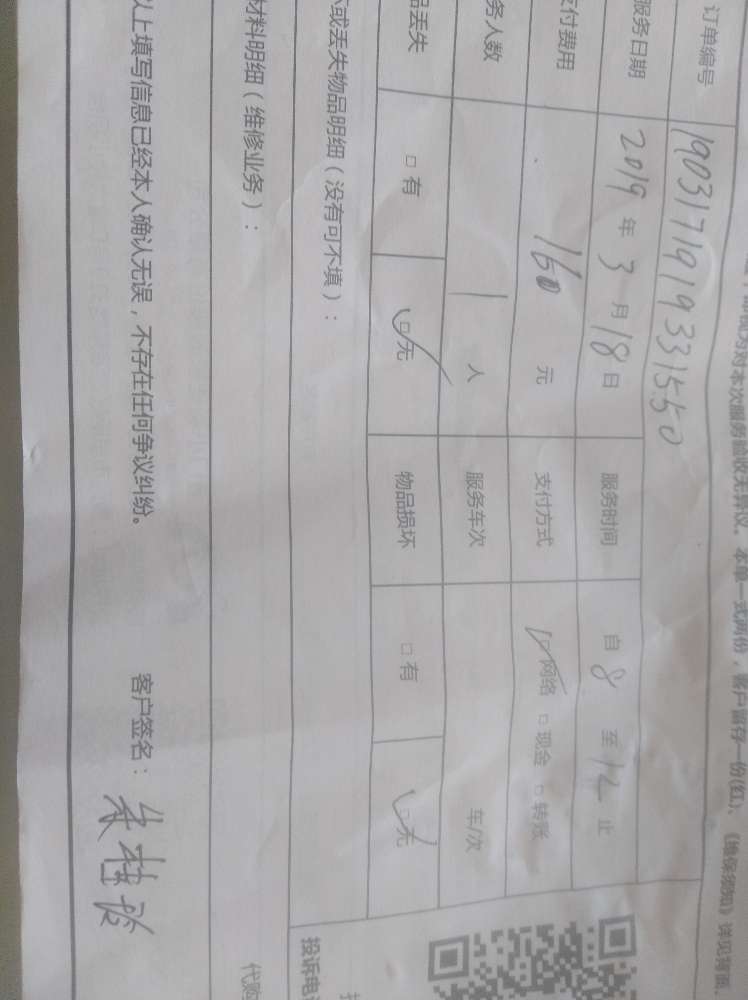 对本次服务验收无异议。本单一式两份，客户留存一份(红)、《维保须知》详见背面。
订单编号 190317191933155 50
服务日期 2019 年 3 月 18 日 服务时间 自 8 至 12 止
支付费用 160 元 支付方式 ☑网络 □现金 □转账
务人数 1 人 服务车次 车/次
品丢失 □有 ☑无 物品损坏 □有 ☑无
或丢失物品明细（没有可不填）：
材料明细（维修业务）：
以上填写信息已经本人确认无误，不存在任何争议纠纷。 客户签名：
投诉电
代购